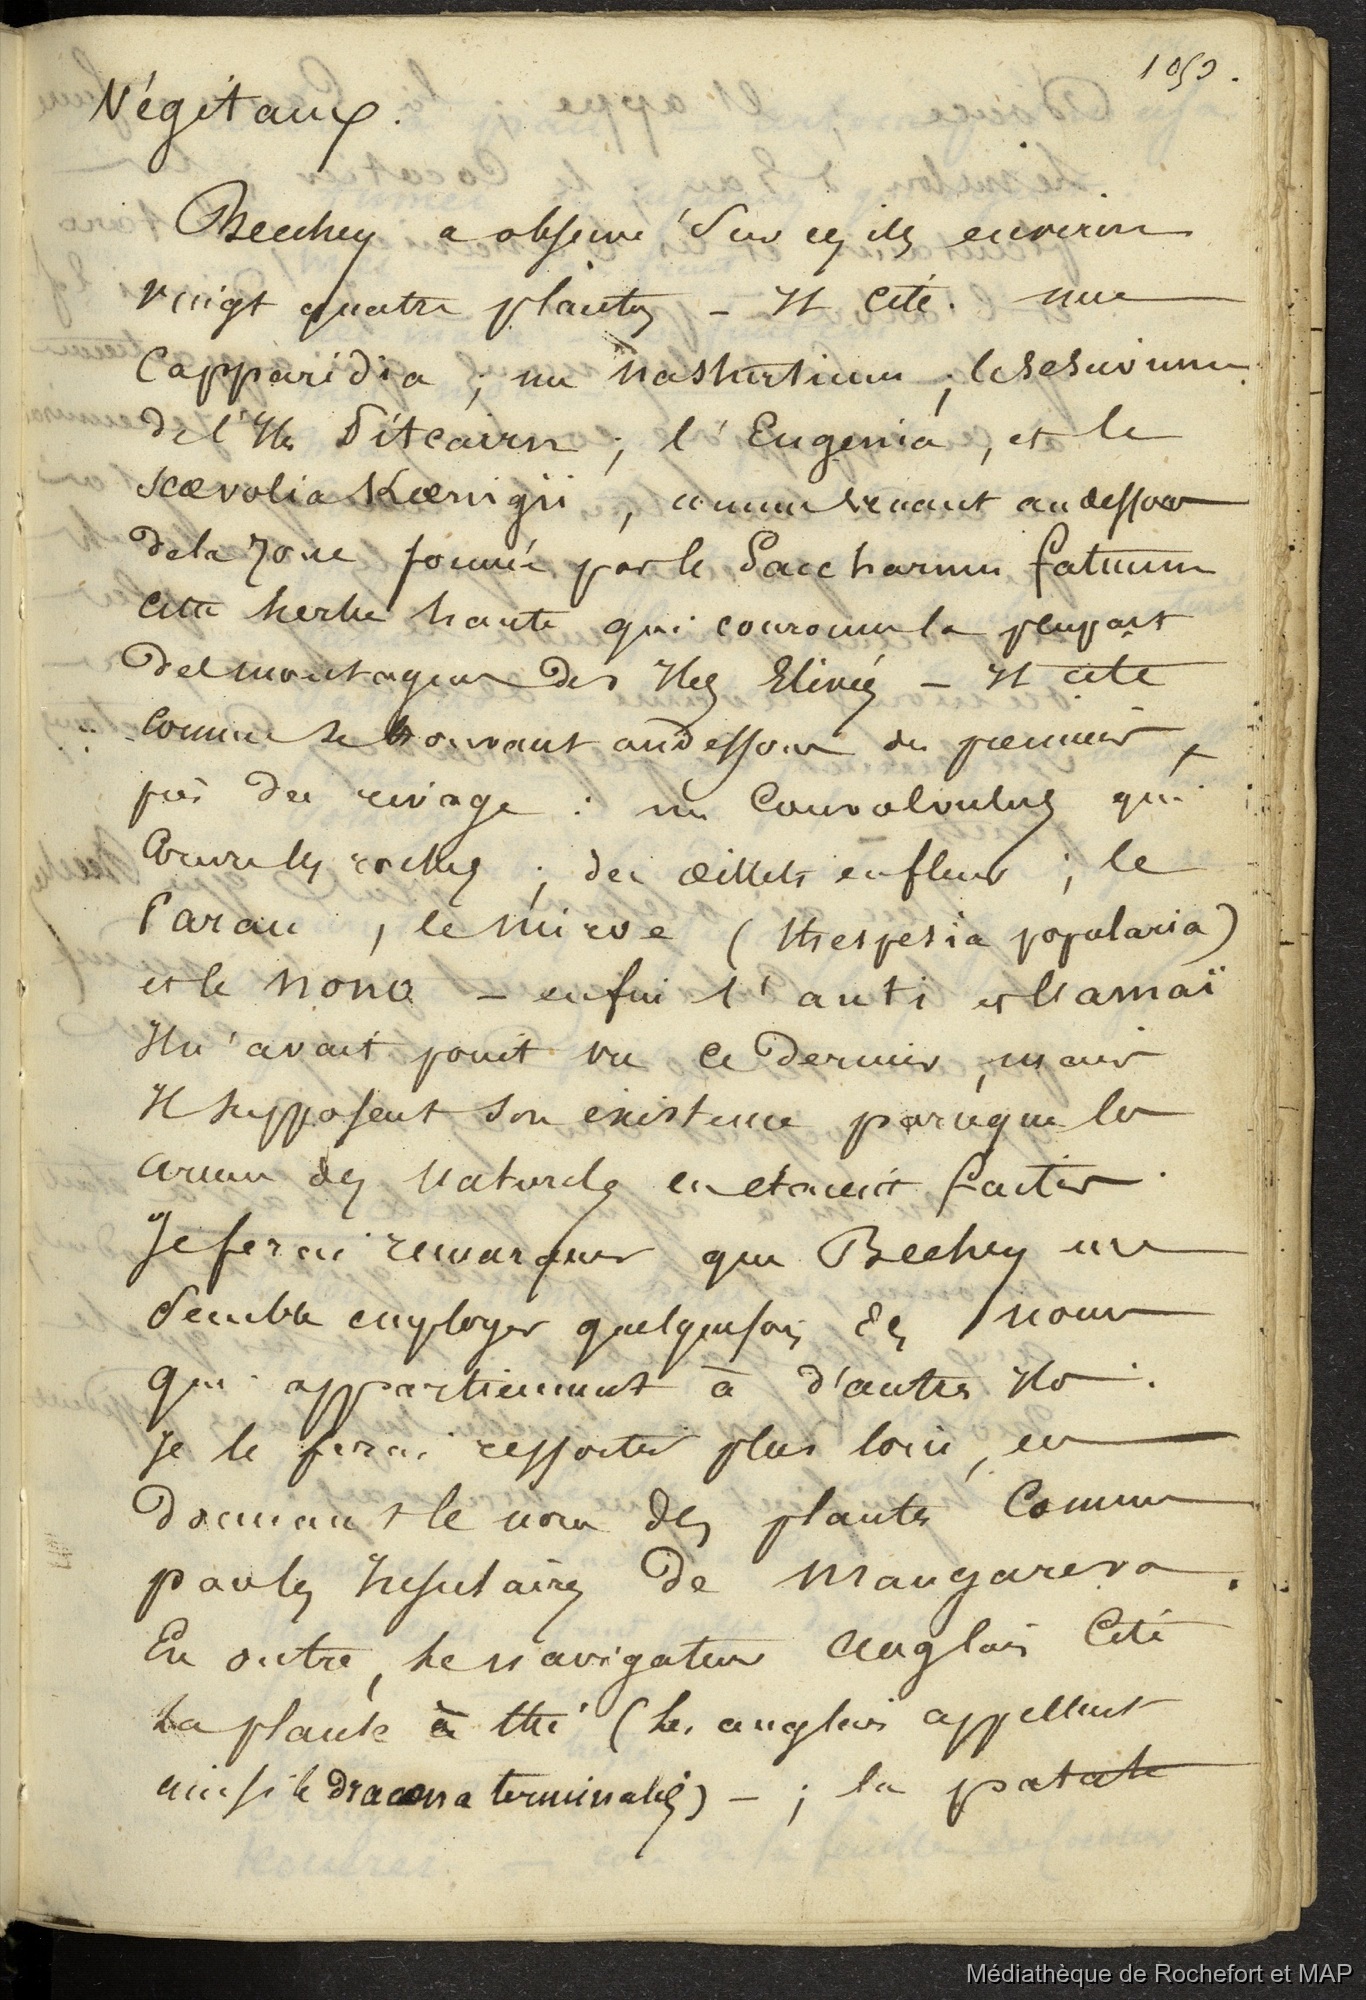 1053.
Végétaux.
Beechey a observé sur ces iles environ
vingt quatre plantes – Il cite. une
Capparidia ; un nasturtium ; le sesuvium
de l'Ile Pitcairn ; l'Eugenia, et le
scævolia Kœnigii, comme venant au dessous
de la zone formée par le Saccharum fatuum
cette herbe haute qui couronne la plupart
des montagnes des Iles Elevées – Il cite
comme se trouvant au dessous des premiers,
près du rivage : un Convolvulus qui
couvre les roches ; des œillets en fleurs ; le
Parau, le Miroe (thespesia popularia)
et le nono – enfin l'auti et l'amaï
Il n'avait point vu ce dernier, mais
Il supposent son existence parceque les
armes des naturels en etaient faites.
Je ferai remarquer que Beechey me
semble employer quelquefois des noms
qui appartiennent à d'autres Iles.
Je le ferai ressortir plus loin, en
donnant le nom des plantes Connues
par les Insulaires de Mangareva.
En outre, le navigateur anglais Cite
La plante à thé (les anglais appellent
ainsi le dracæna terminalis) – ; la patate
Médiathèque de Rochefort et MAP